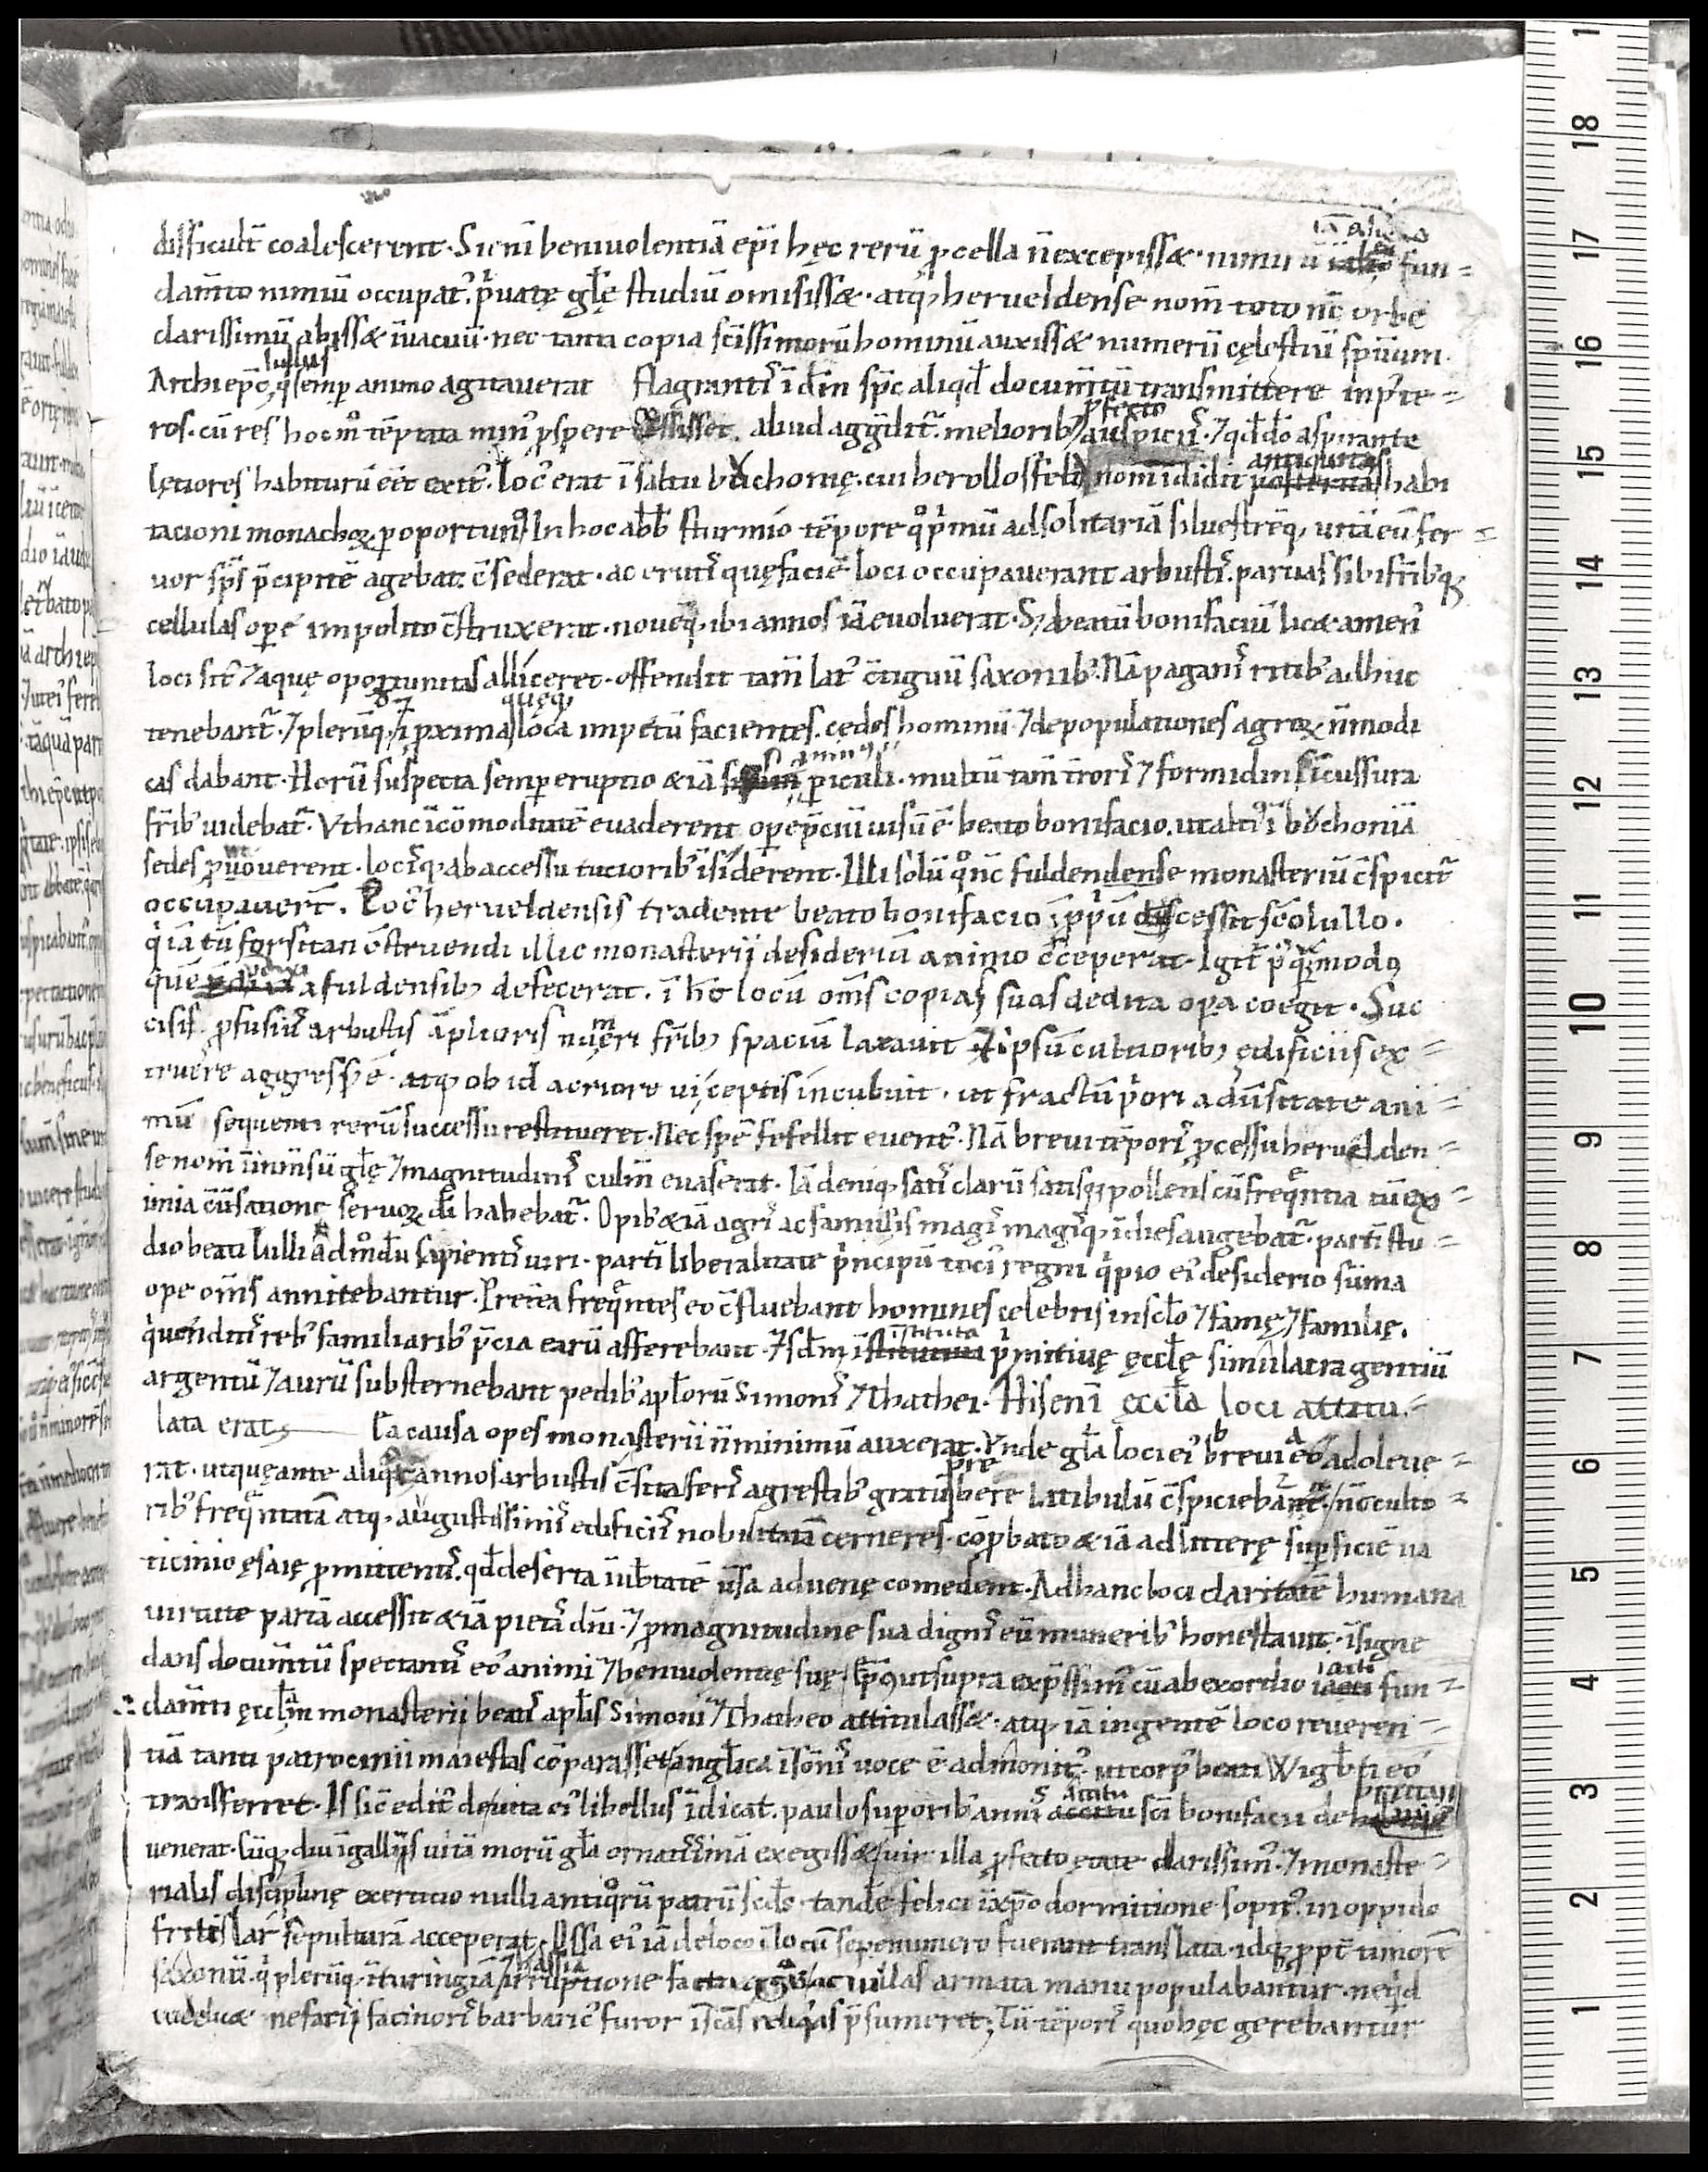 difficult̄ coalescerent. Si eni̅ beniuolentiā ep̄i hęc rerū ꝓcella n̄ excepissæ. nimirū iā alieno fun=
dam̄to nimiū occupatꝰ. p̍uatę gl̄ę studiū omisissæ. atq; herueldense nom̄ toto nc̄ orbe
clarissimū abissæ īuacuū. nec tanta copia sc̄issimorū hominū auxissæ numerū cęlestiū sp̄uum.
Archiep̄c lullus q̍ semꝑ animo agitauerat flagrantiꝰ īdem sp̄c aliqd̄ docum̄tū transmittere in p̍te=
ros. cū res hocm̊ tēptata minꝰ ꝓspere cessisset. aliud aggdit̄. meliorib; ꝓfecto auspiciis. ⁊ qd̄ d̄o aspirante
lętiores habiturū eēt exitꝰ. Locꝰ erat ī saltu bochonię. cui herolfesfeld nom̄ īdidit antiquitas habi
tacioni monachoꝝ ꝑoportunꝰ. In hoc abb̄ sturmio tēpore q̊ p̍mū ad solitariā siluestrēq; uitā eū fer=
uor sp̄s p̄cipitē agebat c̄sederat. ac erutis quę faciē loci occupauerant arbustis. paruas sibi frīb;q;
cellulas oꝑe impolito c̄struxerat. nouēq; ibi annos iā euoluerat. S; beatū bonifaciū licæ ameni
loci sitꝰ ⁊ aquę oportunitas alliceret. offendit tam̄ latꝰ c̄tiguū saxonib;. Nā paganis ritib; adhuc
tenebant̄. ⁊ plerūq; ī ꝓxima quęq; loca impetū facientes. cedes hominū. ⁊ depopulationes agroꝝ n̄ modi
cas dabant. Horū suspecta semꝑ eruptio & iā ꝑiculi. multū tam̄ t̄roris ⁊ formidinis īcussura
frīb; uidebat̄. Vt hanc īcōmoditatē euaderent oꝑep̄ciū uisū ē beato bonifacio. ut altiꝰ ī bochoniā
sedes ꝓmouerent. locisq; ab accessu tucioribꝰ īsiderent. Illi solū q̊ nc̄ fuldendense monasteriū c̄spicit̄
occupauer̄t. Locꝰ herueldensis tradente beato bonifacio ī ꝓpriū cessit sc̄o lullo.
q̍ iā tū forsitan c̄struendi illic monasterij desideriū animo c̄ceperat. Igit̄ p̍ꝰq̄ modo
quē a fuldensib; defecerat. ī hc̄ locū om̄s copias suas dedita opa coegit. Suc
cisis ꝓfusiꝰ arbustis āplioris numeri frīb; spaciū laxauit ⁊ ipsū cultiorib; ędificiis ex=
truere aggressꝰ ē. atq; ob id acriore ui ceptis incubuit. ut fractū p̍ori adūsitate ani=
mū sequenti rerū successu restitueret. Nec spē fefellit euentꝰ. Nā breui tēporis ꝓcessu heruelden=
se nom̄ ī īm̄sū gl̄ę ⁊ magnitudinis culm̄ euaserat. Iā deniq; satis clarū satisq; pollens cū freq̄ntia tū ex=
imia c̄ūsatione seruoꝝ dī habebat̄. Opib; & iā agris ac familiis magis magisq; īdies augebat̄. partī stu=
dio beati lulli admodū sapientis uiri. partī liberalitate p̍ncipū tociꝰ regni q̍ pio eiꝰ desiderio sūma
ope om̄s annitebantur. Preterea freq̄ntes eo c̄fluebant homines celebris in sclo ⁊ famę ⁊ familię.
q̍ uenditis rebꝰ familiaribꝰ p̄cia earū afferebant. ⁊ scdm̄ īstituta p̍mitiuę ęccl̄ę simulacra gentiū
argentū ⁊ aurū substernebant pedibꝰ apl̄orū Simonis ⁊ Thathei. His eni̅ ęccl̄a loci attitu=
lata erat. Ea causa opes monasterii n̄ minimū auxerat. Vnde gl̄a loci eiꝰ breui eo adoleue=
rat. ut quę ante aliq̊t annos arbustis c̄sita feris agrestibꝰ gratū prebere latibulū c̄spiciebant̄. n̄c culto=
ribꝰ freq̄ntatā atq; augustissimis edificiis nobilitatā cerneres. cōꝓbato & iā ad litterę suꝑficiē ua
ticinio ęsaię ꝓmittentis. qd̄ deserta ī ub̄tatē ūsa aduenę comedent. Ad hanc loci claritatē humana
uirtute partā accessit & iā pietas dn̄i. ⁊ ꝓ magnitudine sua dignis eū muneribꝰ honestauit. īsigne
dans docum̄tū spectantis eoꝰ animi ⁊ beniuolentię suę. Lp̄c ut supra exp̄ssimꝰ cū ab exordio iacti fun=
dam̄ti ęccl̄am monasterij beatis apl̄is Simoni ⁊ Thatheo attitulassæ. atq; iā ingentē loco reueren=
tiā tanti patrocinii maiestas cōparasset. angl̄ica īsōnis uoce ē admonitꝰ. ut corpꝰ beati Wigb̄ti eo
transferret. Is sic̄ editꝰ de uita eiꝰ libellus īdicat. paulo suꝑioribꝰ annis accitu sc̄i bonifacii de
uenerat. cūq; diu ī gallijs uitā morū gl̄a ornatissimā exegissæ uir illa ꝓfecto ętate clarissimꝰ. ⁊ monaste=
rialis disciplinę exercicio nulli antiq̊rū patrū scds̄. tandē felici ī xp̄o dormitione sopitꝰ. in oppido
fritislar sepulturā acceperat. Ossa eiꝰ iā de loco ī locū sepenumero fuerant translata. idq; ꝓpt̄ timorē
saxonū. q̍ plerūq; ī turingiā ⁊ hassiā irruptione facta agros ac uillas armata manu populabantur. ne q̍d
uidelicæ nefarij facinoris barbaricꝰ furor ī sc̄as reliq̍as p̄sumeret; Tū tēporis quo hęc gerebantur